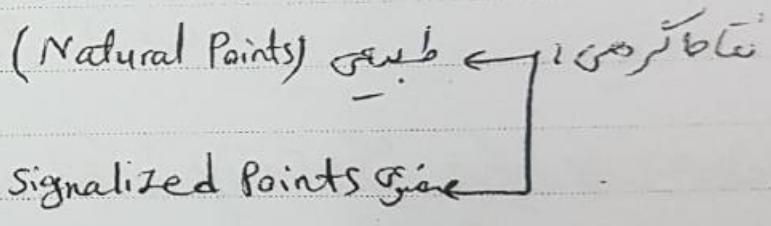 نقاط گرهی : ← طبیعی (Natural Points)
مصنوعی Signalized Points